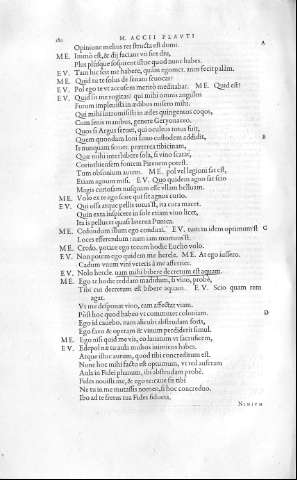 M. ACCII PLAVTI
Opinione melius res structa est domi.
ME. Immò est, & dij faciant vti siet diu,
Plus plusque sospitent istuc quod nunc habes.
EV. Tum hic sciit me habere, quàm egomet. anus fecit palàm.
ME. Quid tu te solus de senatu seuocas?
EV. Pol ego te vt accusem meritò meditabar. ME. Quid est?
EV. Quid sit me rogitas? qui mihi omnis angulos
Furum impleuisti in ædibus misero mihi.
Qui mihi intromisisti in ædes quingentos coquos,
Cum senis manibus, genere Geryonaceo.
Quos si Argus seruet, qui oculeus totus fuit,
Quem quondam Ioni Iuno custodem addidit,
Is nunquam seruet. præterea tibicinam,
Quæ mihi interbibere sola, si vino scatat,
Corinthiensem fontem Pirenem potest.
Tum obsonium autem. ME. pol vel legioni sat est,
Etiam agnum misi. EV. Quo quidem agno sat scio
Magis curiosam nusquam esse vllam belluam.
ME. Volo ex te ego scire qui sit agnus curio.
EV. Qui ossa atque pellis totus est, ita cura macet.
Quin exta inspicere in sole etiam viuo licet,
Ita is pellucet quasi laterna Punica.
ME. Cædundum illum ego conduxi. EV. tum tu idem optimum est
Loces efferendum: nam iam mortuus est.
ME. Credo. potare ego tecum hodie Euclio volo.
EV. Non potem ego quidem me hercle. ME. At ego iussero.
Cadum vnum vini veteris à me afferrier.
EV. Nolo hercle. nam mihi bibere decretum est aquam.
ME. Ego te hodie reddam madidum, si viuo, probè,
Tibi cui decretum est bibere aquam. EV. Scio quam rem
agat.
Vt me deponat vino, eam affectat viam.
Post hoc quod habeo vt commutet coloniam.
Ego id cauebo. nam alicubi abstrudam foris,
Ego faxo & operam & vinum perdiderit simul.
ME. Ego nisi quid me vis, eo lauatum vt sacruficem.
EV. Edepol næ tu aula multos inimicos habes.
Atque istuc aurum, quod tibi concreditum est.
Nunc hoc mihi factu est optumum, vt ted auferam
Aula in Fidei phanum, ibi abstrudam probè.
Fides nouisti me, & ego te: caue sis tibi
Ne tu in me mutassis nomen, si hoc concreduo.
Ibo ad te fretus tua Fides fiducia.
NIMIVM
A
B
C
D